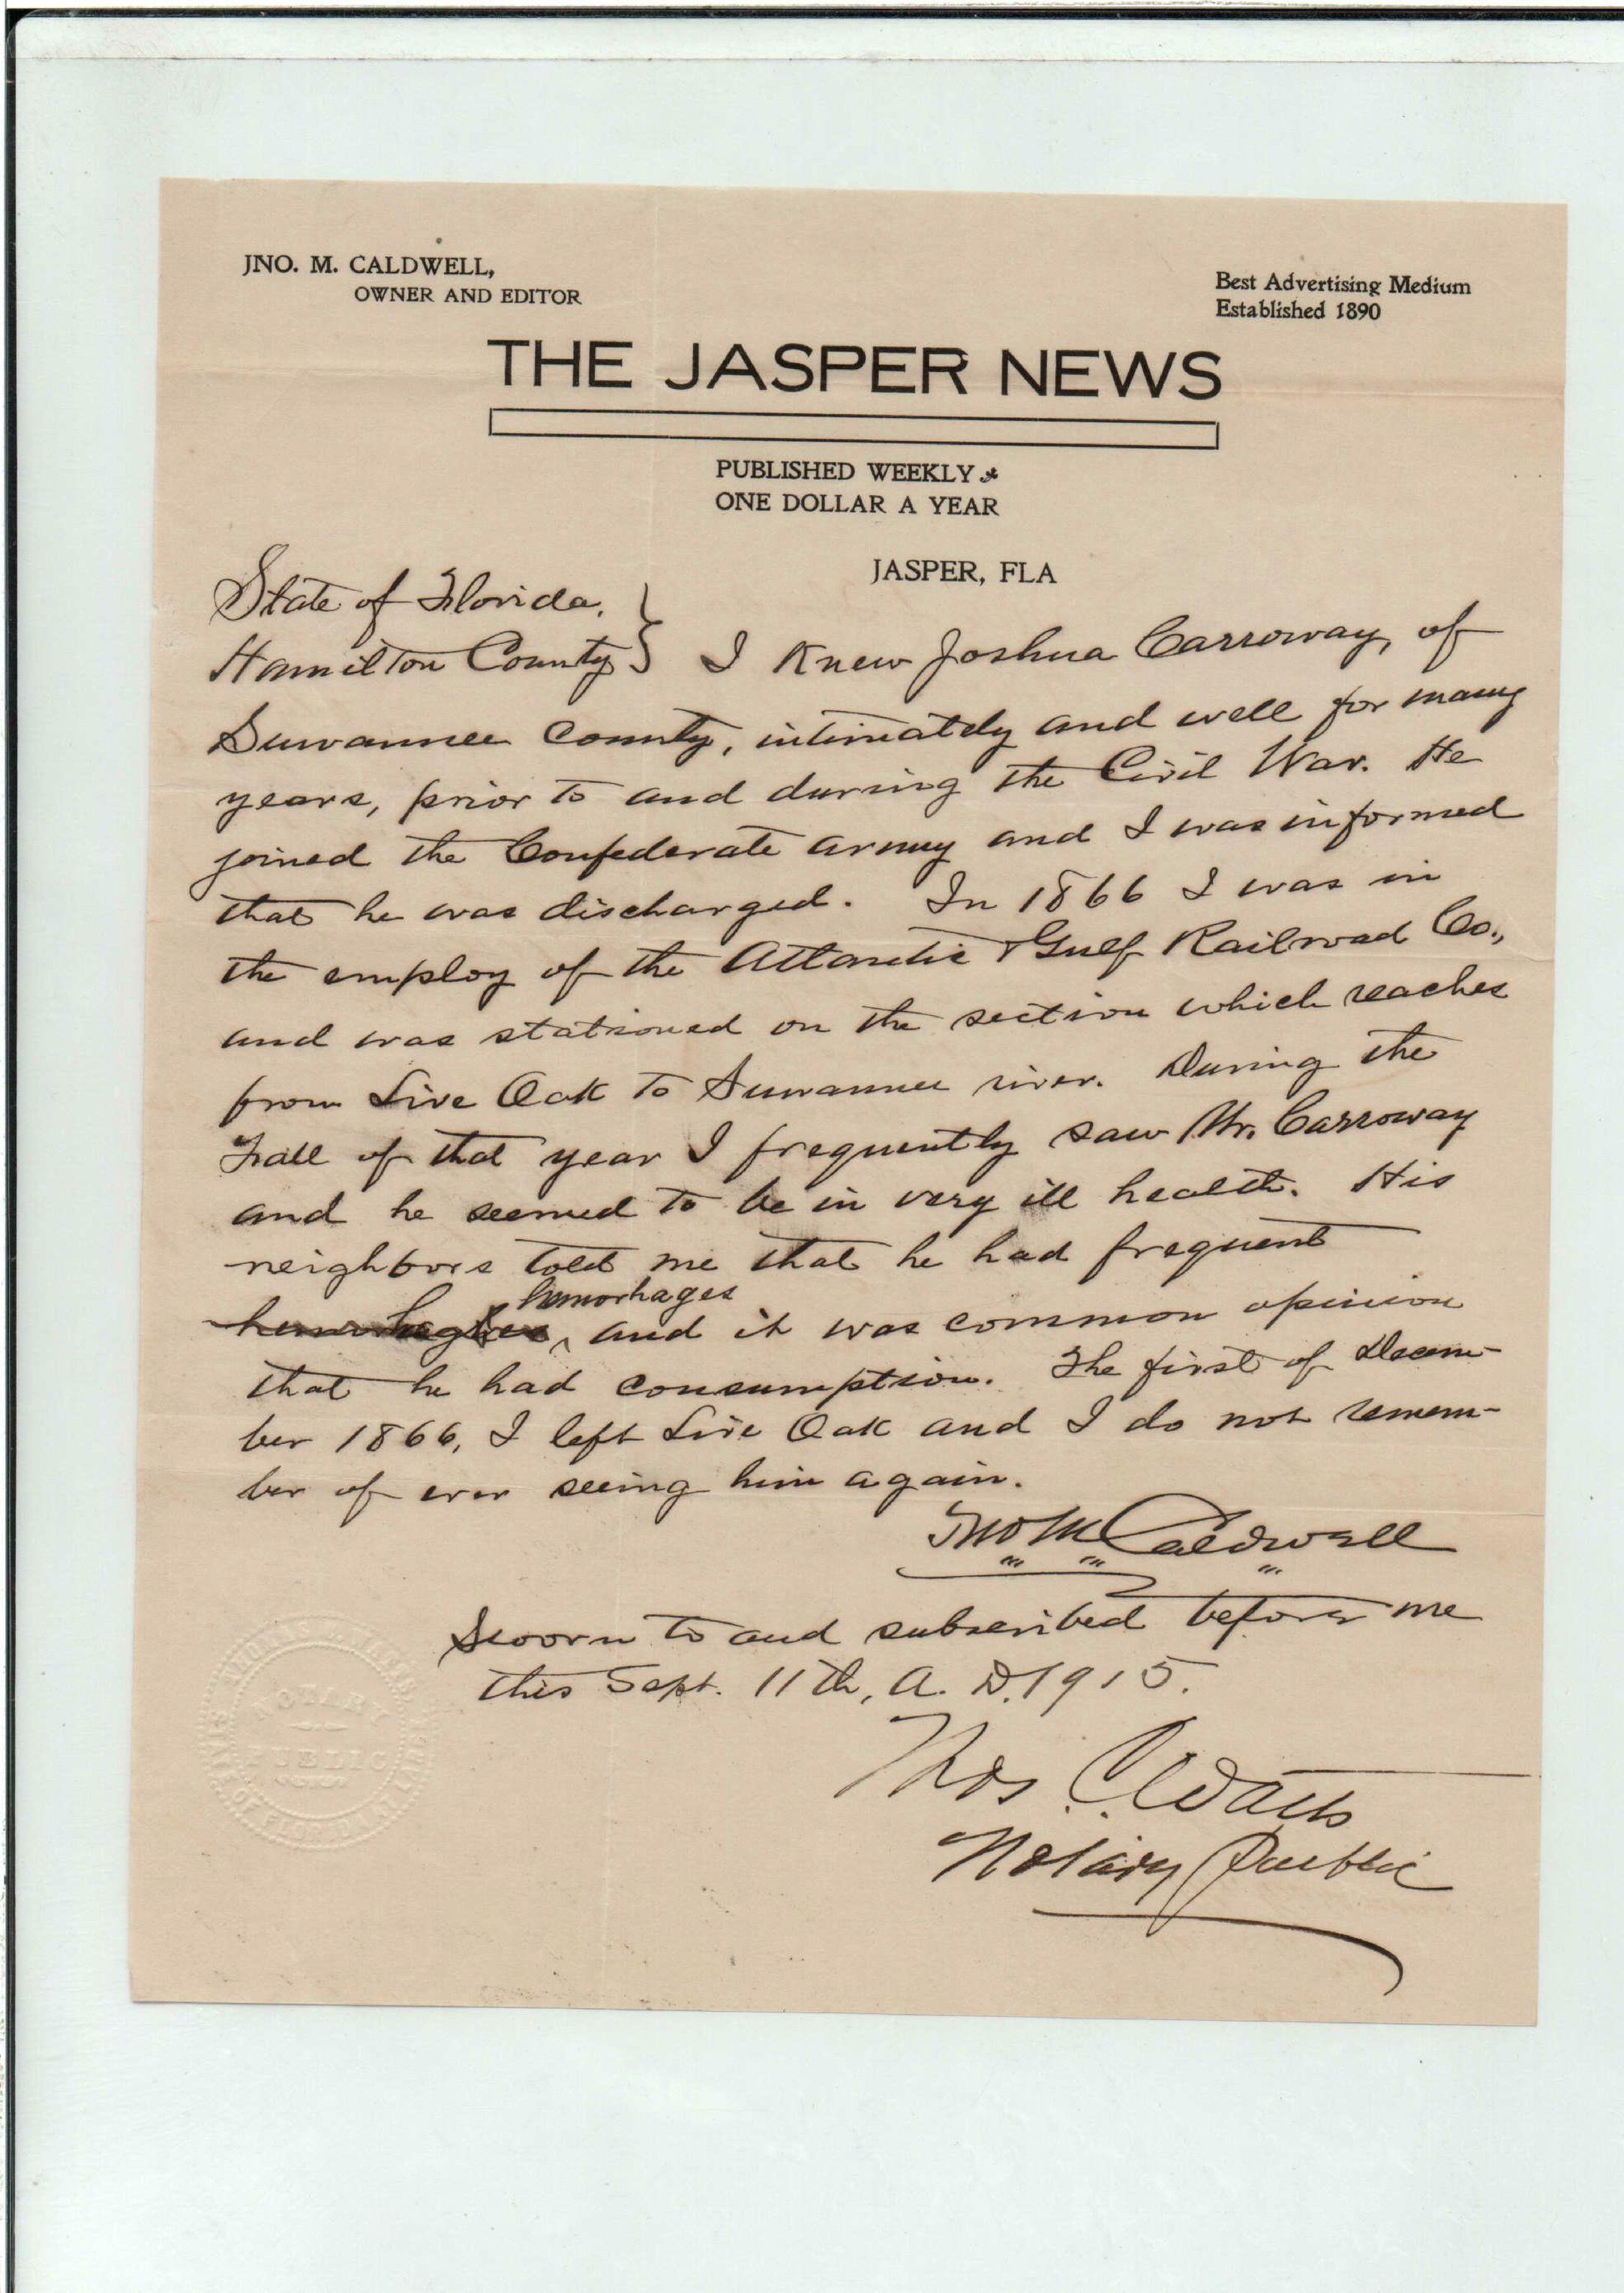 JNO. M. CALDWELL,
OWNER AND EDITOR
Best Advertising Medium
Established 1890
THE JASPER NEWS
PUBLISHED WEEKLY
ONE DOLLAR A YEAR
JASPER, FLA
State of Florida,
Hamilton County } I knew Joshua Carroway, of
Suwannee County, intimately and well for many
years, prior to and during the Civil War. He
joined the Confederate army and I was informed
that he was discharged. In 1866 I was in
the employ of the Atlantic & Gulf Railroad Co.,
and was stationed on the section which reaches
from Live Oak to Suwannee river. During the
Fall of that year I frequently saw Mr. Carroway
and he seemed to be in very ill health. His
neighbors told me that he had frequent
hemorhages
and it was common opinion
that he had consumption. The first of Decem-
ber 1866, I left Live Oak and I do not remem-
ber of ever seeing him again.
Jno M Caldwell
Sworn to and subscribed before me
this Sept. 11th, A. D. 1915.
Thos. C. Watts
Notary Public
NOTARY
PUBLIC